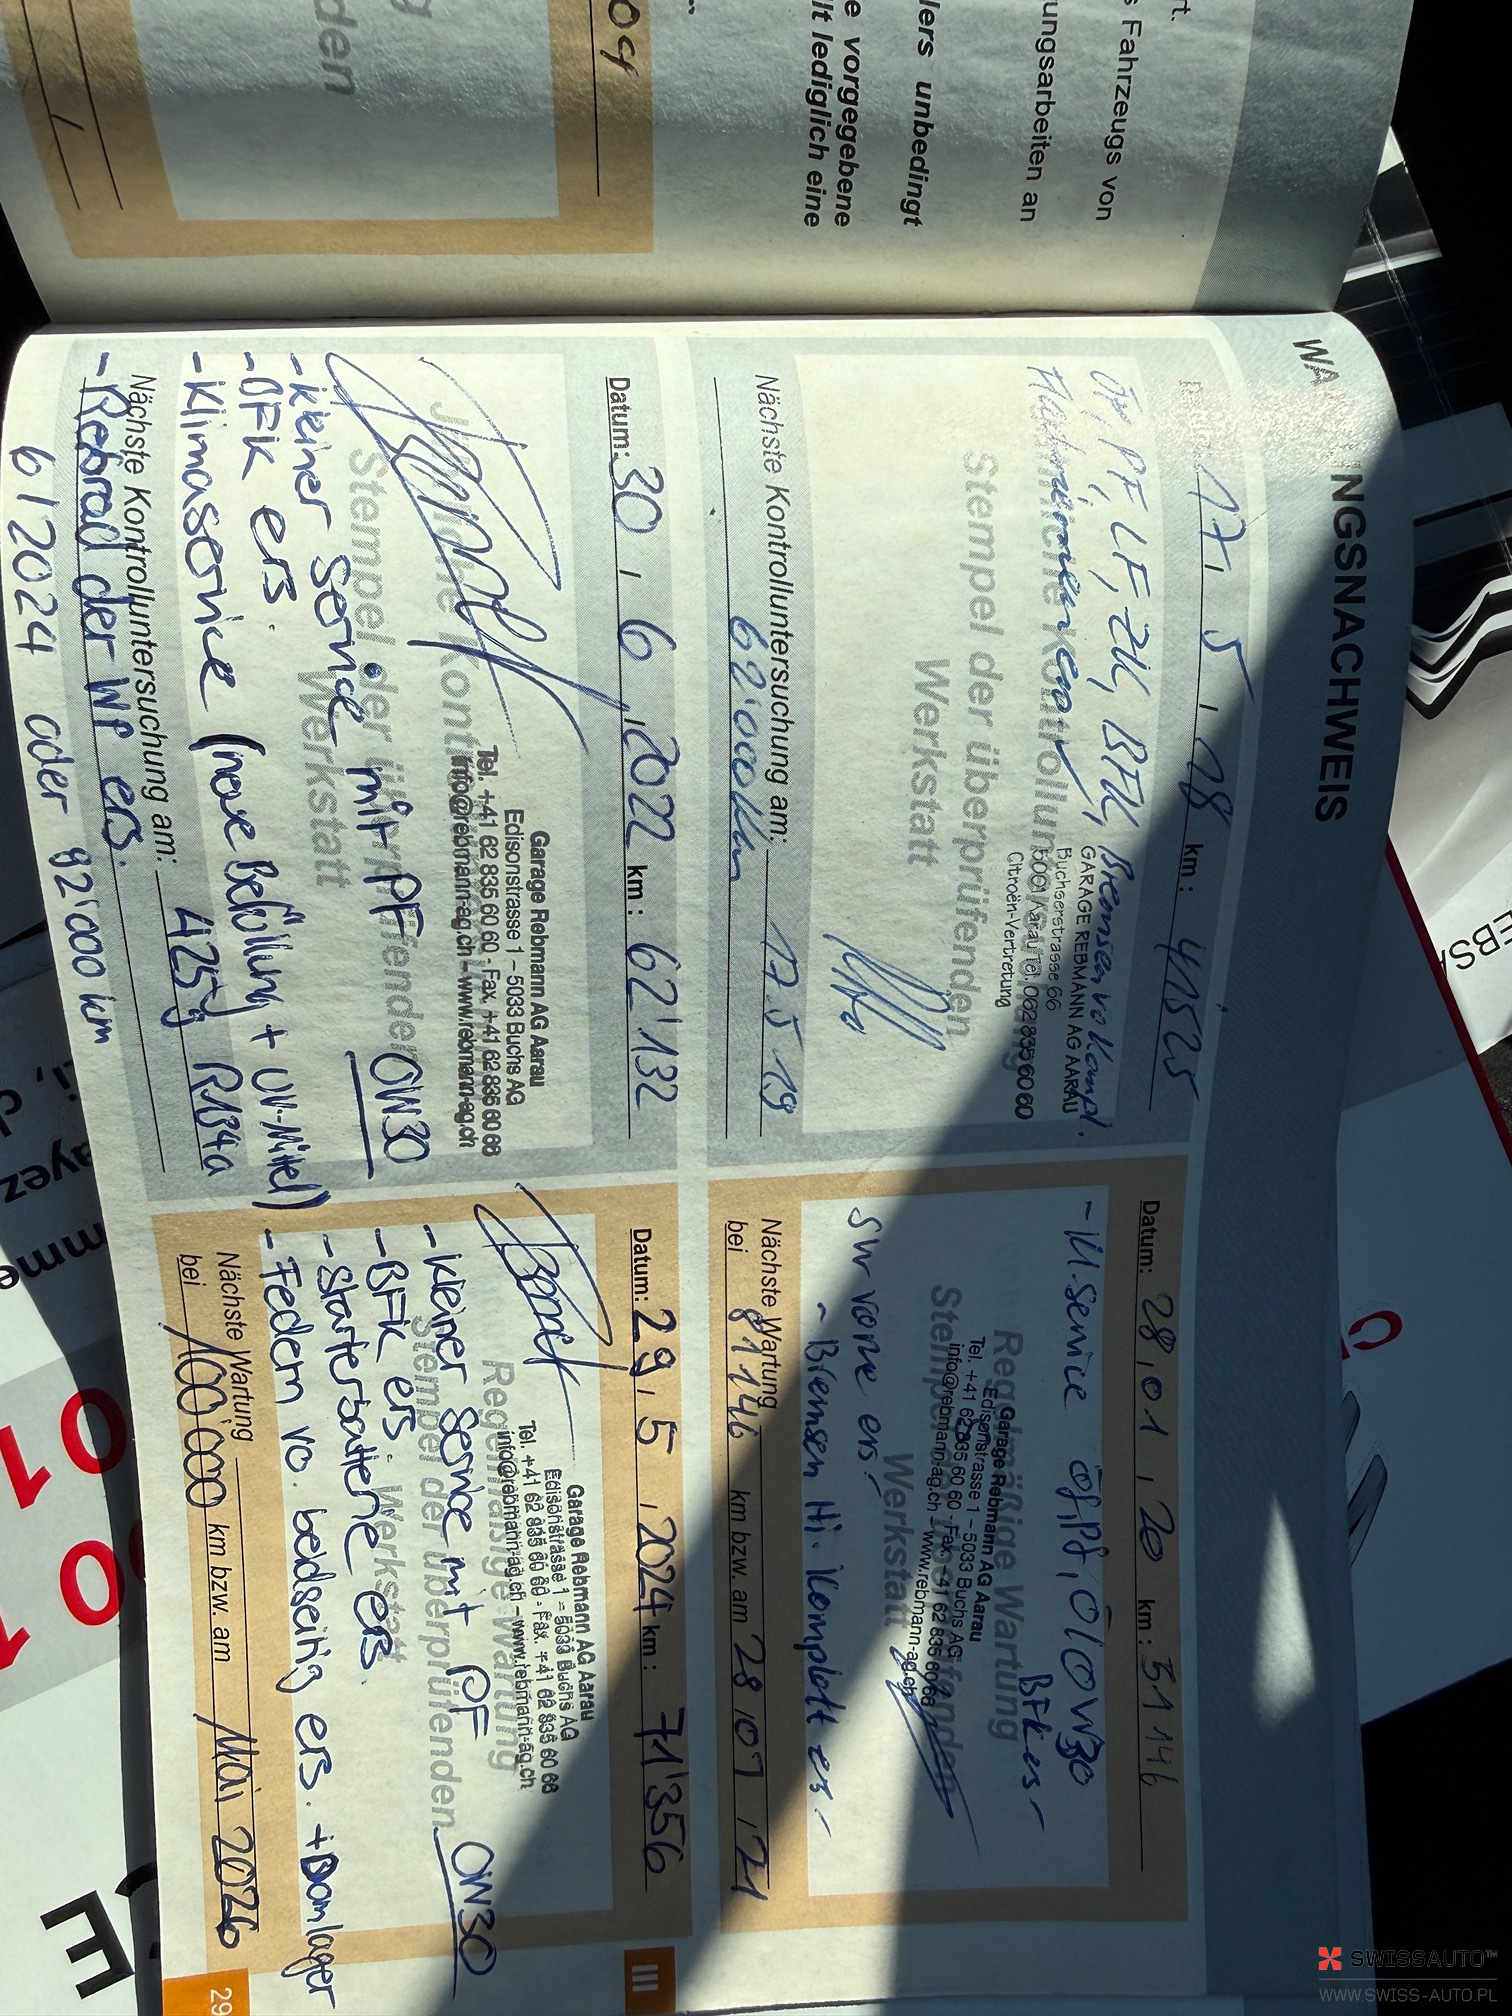 WA NGSNACHWEIS
17. 5. 18 km: 41525
Öl, PF, LF, ZK, BFK, Bremsen vo kompl.
GARAGE REBMANN AG AARAU
Buchserstrasse 66
5001 Aarau Tel. 062 835 60 60
Citroën-Vertretung
Stempel der überprüfenden
Werkstatt
Nächste Kontrolluntersuchung am: 17.5.19
62'000km
Datum: 28.01.20 km: 51146
- Kl-Service ÖF, Pf, Öl 0W30
BFK ers-
Regelmäßige Wartung
Stempel der überprüfenden
Werkstatt
Garage Rebmann AG Aarau
Edisonstrasse 1 – 5033 Buchs AG
Tel. +41 62 835 60 60 - Fax. +41 62 835 60 68
info@rebmann-ag.ch – www.rebmann-ag.ch
SW vorne ers-
- Bremsen Hi. komplett ers-
Nächste Wartung
bei 81146 km bzw. am 28.07.21
Datum: 30.6.2022 km: 62'132
Garage Rebmann AG Aarau
Edisonstrasse 1 – 5033 Buchs AG
Tel. +41 62 835 60 60 - Fax. +41 62 835 60 68
info@rebmann-ag.ch – www.rebmann-ag.ch
Stempel der überprüfenden
Werkstatt
- Kleiner Service mit PF 0W30
- BFK ers.
- Klimaservice (neue Befüllung + UV-Mittel)
425g R134a
Nächste Kontrolluntersuchung am:
- Reibrad der WP ers.
6/2024 oder 92'000 km
Datum: 29.5.2024 km: 71'356
Garage Rebmann AG Aarau
Edisonstrasse 1 – 5033 Buchs AG
Tel. +41 62 835 60 60 - Fax. +41 62 835 60 68
info@rebmann-ag.ch – www.rebmann-ag.ch
Regelmäßige Wartung
Stempel der überprüfenden
Werkstatt
- Kleiner Service mit PF 0W30
- BFK ers.
- Starterbatterie ers.
- Federn vo. beidseitig ers. + Domlager
Nächste Wartung
bei 100'000 km bzw. am Mai 2026
III
29
rt.
s Fahrzeugs von
ungsarbeiten an
lers unbedingt
e vorgegebene
lt lediglich eine
g
den
09
SWISSAUTO™
WWW.SWISS-AUTO.PL